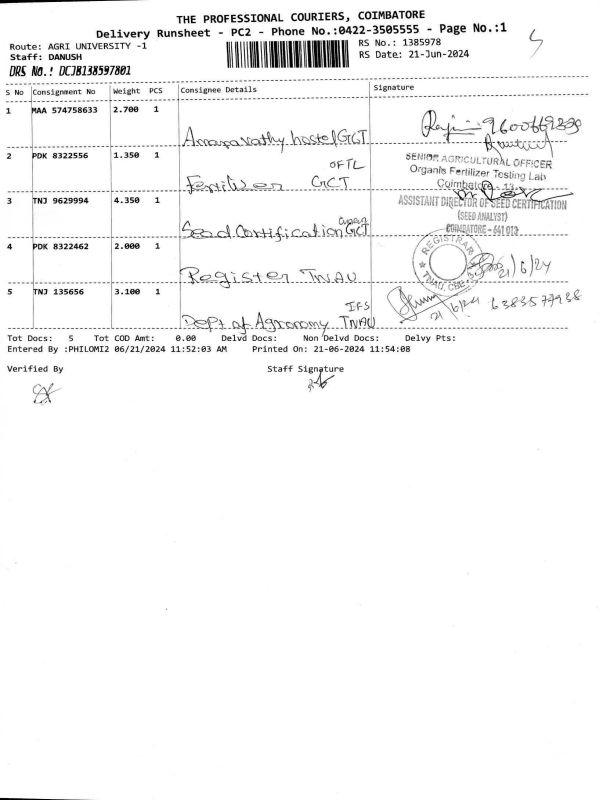 THE PROFESSIONAL COURIERS, COIMBATORE
Delivery Runsheet - PC2 - Phone No.:0422-3505555 - Page No.:1
Route: AGRI UNIVERSITY -1
RS No.: 1385978
Staff: DANUSH
RS Date: 21-Jun-2024
DRS No.: DCJB138597801
S No Consignment No Weight PCS Consignee Details Signature
1 MAA 574758633 2.700 1
Amaravathy hostel GCT
9600669839
2 PDK 8322556 1.350 1
OFTL
Fertilizer GCT
SENIOR AGRICULTURAL OFFICER
Organic Fertilizer Testing Lab
Coimbatore - 13
3 TNJ 9629994 4.350 1
Seed Certification GCT
ASSISTANT DIRECTOR OF SEED CERTIFICATION
(SEED ANALYST)
COIMBATORE - 641 013
4 PDK 8322462 2.000 1
Register TNAU
REGISTRAR
TNAU, CBE
21/6/24
5 TNJ 135656 3.100 1
IFS
Dept of Agronomy TNAU
21/6/24 6383577938
Tot Docs: 5 Tot COD Amt: 0.00 Delvd Docs: Non Delvd Docs: Delvy Pts:
Entered By :PHILOMI2 06/21/2024 11:52:03 AM Printed On: 21-06-2024 11:54:08
Verified By Staff Signature